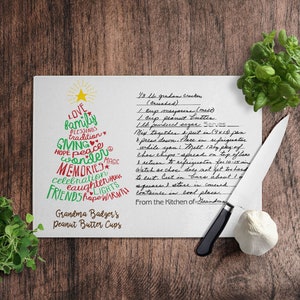 LOVE
family
BLESSINGS
tradition
GIVING
HOPE peace
wonder
MEMORIES MAGIC
celebration
laughter
FRIENDS LIGHTS
hope WARMTH
Grandma Badger's
Peanut Butter Cups
1/2 lb graham cracker
(crushed)
1 cup margarine (melt)
1 cup peanut butter
1 lb powdered sugar Serves
Mix together & put in 9x13 pan
& press down. Place in refrigerator
while you: Melt 12oz pkg of
choc chips - spread on top of
& return to refrigerator
Watch so choc does not get too hard
to cut. Cut in bars about 1
squares & store in covered
container in cool place.
From the Kitchen of Grandma